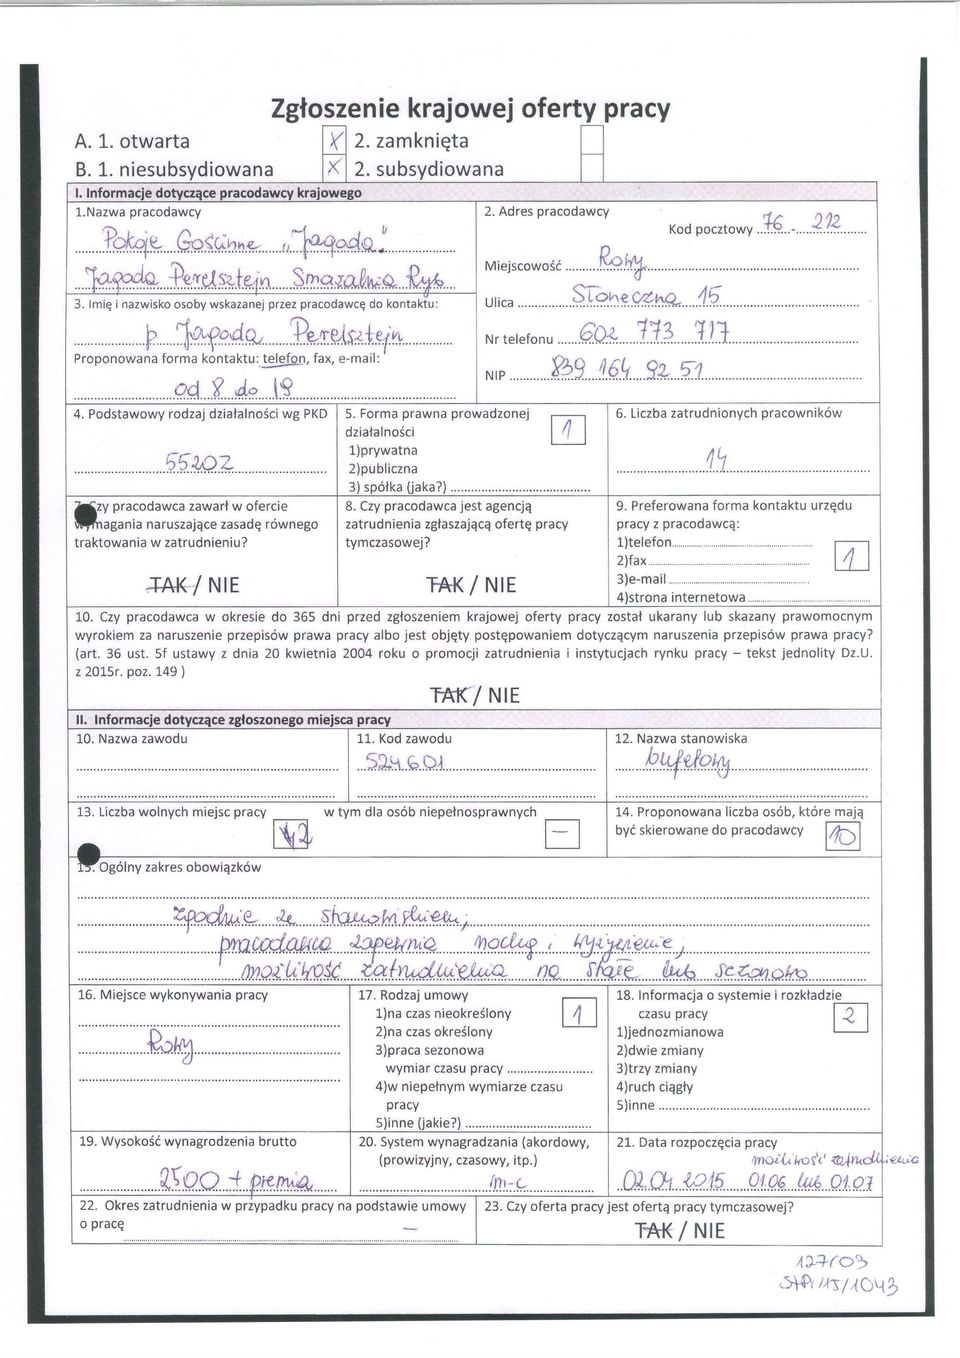 Zgłoszenie krajowej oferty pracy
A. 1. otwarta X 2. zamknięta
B. 1. niesubsydiowana X 2. subsydiowana
I. Informacje dotyczące pracodawcy krajowego
1.Nazwa pracodawcy
Pokoje Gościnne „Jagoda"
Jagoda Perelsztejn Smażalnia Ryb
2. Adres pracodawcy
Kod pocztowy 76 - 212
Miejscowość Rowy
Ulica Słoneczna 15
Nr telefonu 602 773 717
NIP 839 164 92 51
3. Imię i nazwisko osoby wskazanej przez pracodawcę do kontaktu:
p. Jagoda Perelsztejn
Proponowana forma kontaktu: telefon, fax, e-mail:
od 8 do 18
4. Podstawowy rodzaj działalności wg PKD
5520Z
5. Forma prawna prowadzonej
działalności 1
1)prywatna
2)publiczna
3) spółka (jaka?)
6. Liczba zatrudnionych pracowników
14
7. Czy pracodawca zawarł w ofercie
wymagania naruszające zasadę równego
traktowania w zatrudnieniu?
TAK / NIE
8. Czy pracodawca jest agencją
zatrudnienia zgłaszającą ofertę pracy
tymczasowej?
TAK / NIE
9. Preferowana forma kontaktu urzędu
pracy z pracodawcą:
1)telefon 1
2)fax
3)e-mail
4)strona internetowa
10. Czy pracodawca w okresie do 365 dni przed zgłoszeniem krajowej oferty pracy został ukarany lub skazany prawomocnym
wyrokiem za naruszenie przepisów prawa pracy albo jest objęty postępowaniem dotyczącym naruszenia przepisów prawa pracy?
(art. 36 ust. 5f ustawy z dnia 20 kwietnia 2004 roku o promocji zatrudnienia i instytucjach rynku pracy – tekst jednolity Dz.U.
z 2015r. poz. 149 )
TAK / NIE
II. Informacje dotyczące zgłoszonego miejsca pracy
10. Nazwa zawodu
11. Kod zawodu
524601
12. Nazwa stanowiska
bufetowy
13. Liczba wolnych miejsc pracy 2 w tym dla osób niepełnosprawnych –
14. Proponowana liczba osób, które mają
być skierowane do pracodawcy 10
15. Ogólny zakres obowiązków
zgodnie ze stanowiskiem;
pracodawca zapewnia nocleg, wyżywienie;
możliwość zatrudnienia na stałe lub sezonowo
16. Miejsce wykonywania pracy
Rowy
17. Rodzaj umowy 1
1)na czas nieokreślony
2)na czas określony
3)praca sezonowa
wymiar czasu pracy
4)w niepełnym wymiarze czasu
pracy
5)inne (jakie?)
18. Informacja o systemie i rozkładzie
czasu pracy 2
1)jednozmianowa
2)dwie zmiany
3)trzy zmiany
4)ruch ciągły
5)inne
19. Wysokość wynagrodzenia brutto
2500 + premia
20. System wynagradzania (akordowy,
(prowizyjny, czasowy, itp.)
m-c
21. Data rozpoczęcia pracy
możliwość zatrudnienia
02.04.2015 01.06 lub 01.07
22. Okres zatrudnienia w przypadku pracy na podstawie umowy
o pracę –
23. Czy oferta pracy jest ofertą pracy tymczasowej?
TAK / NIE
StPr/15/1043